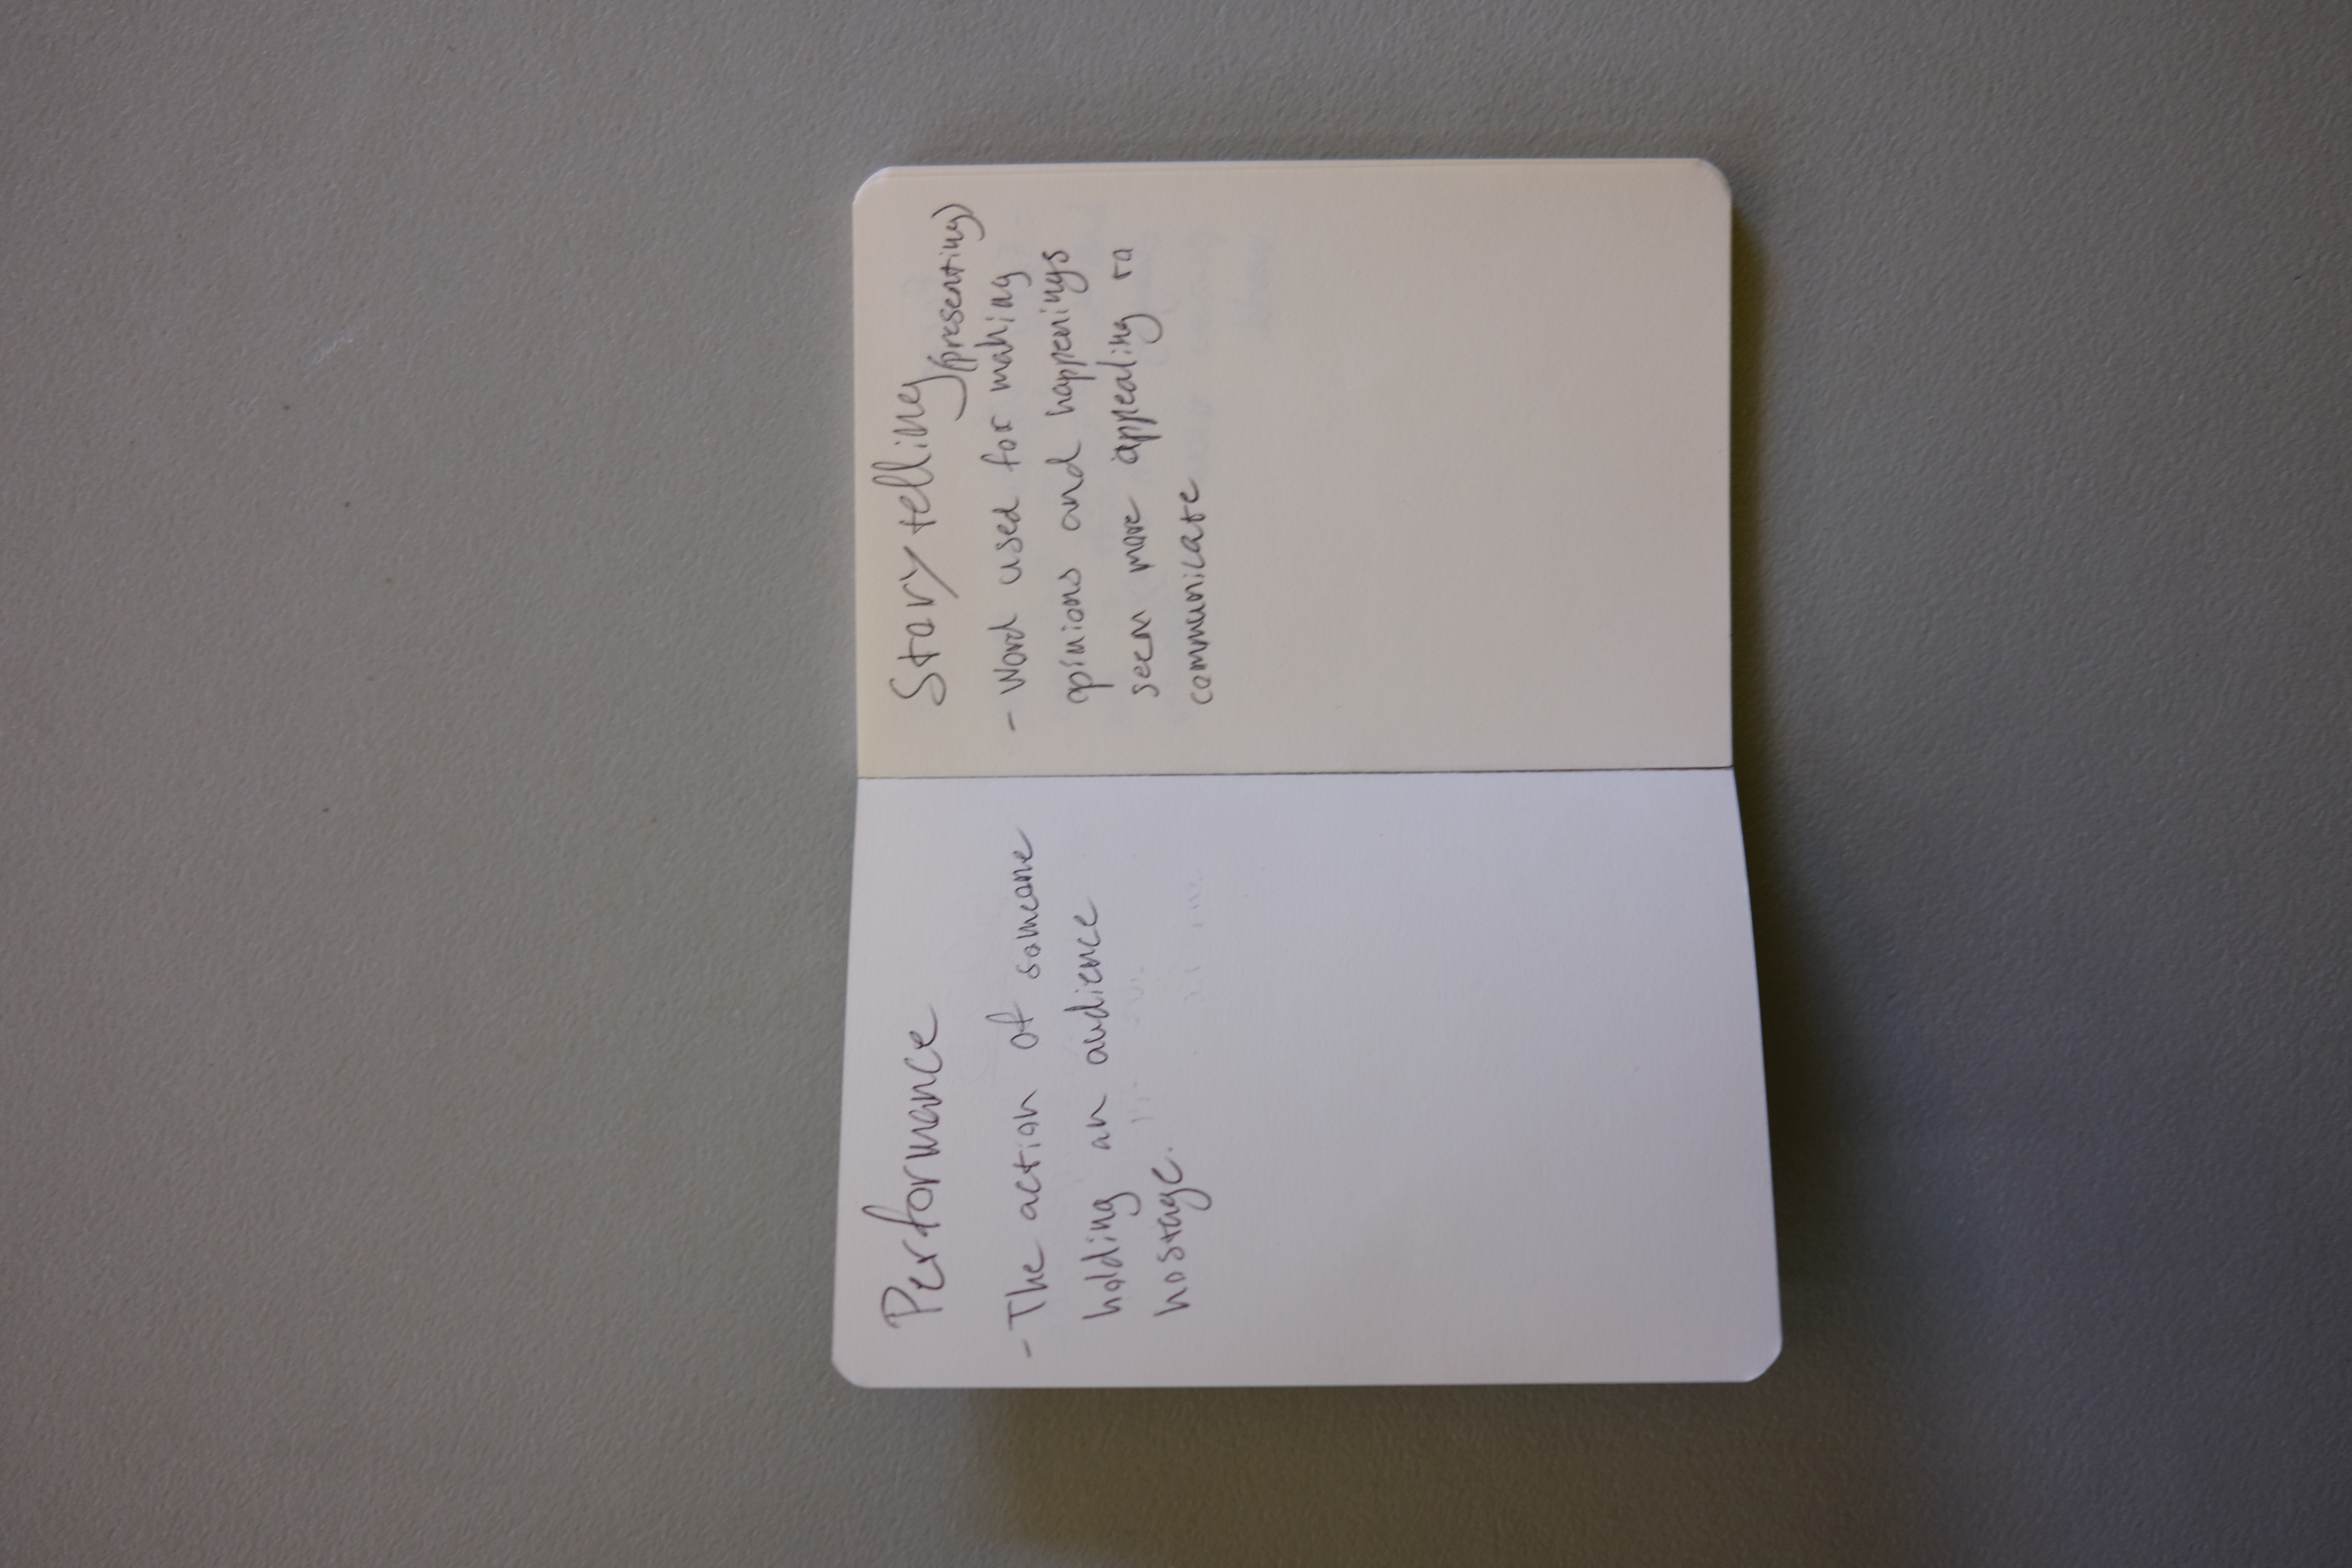 Performance
- The action of someone
holding an audience
hostage.
Storytelling
(presenting)
- Word used for making
opinions and happenings
seem more appealing to
communicate